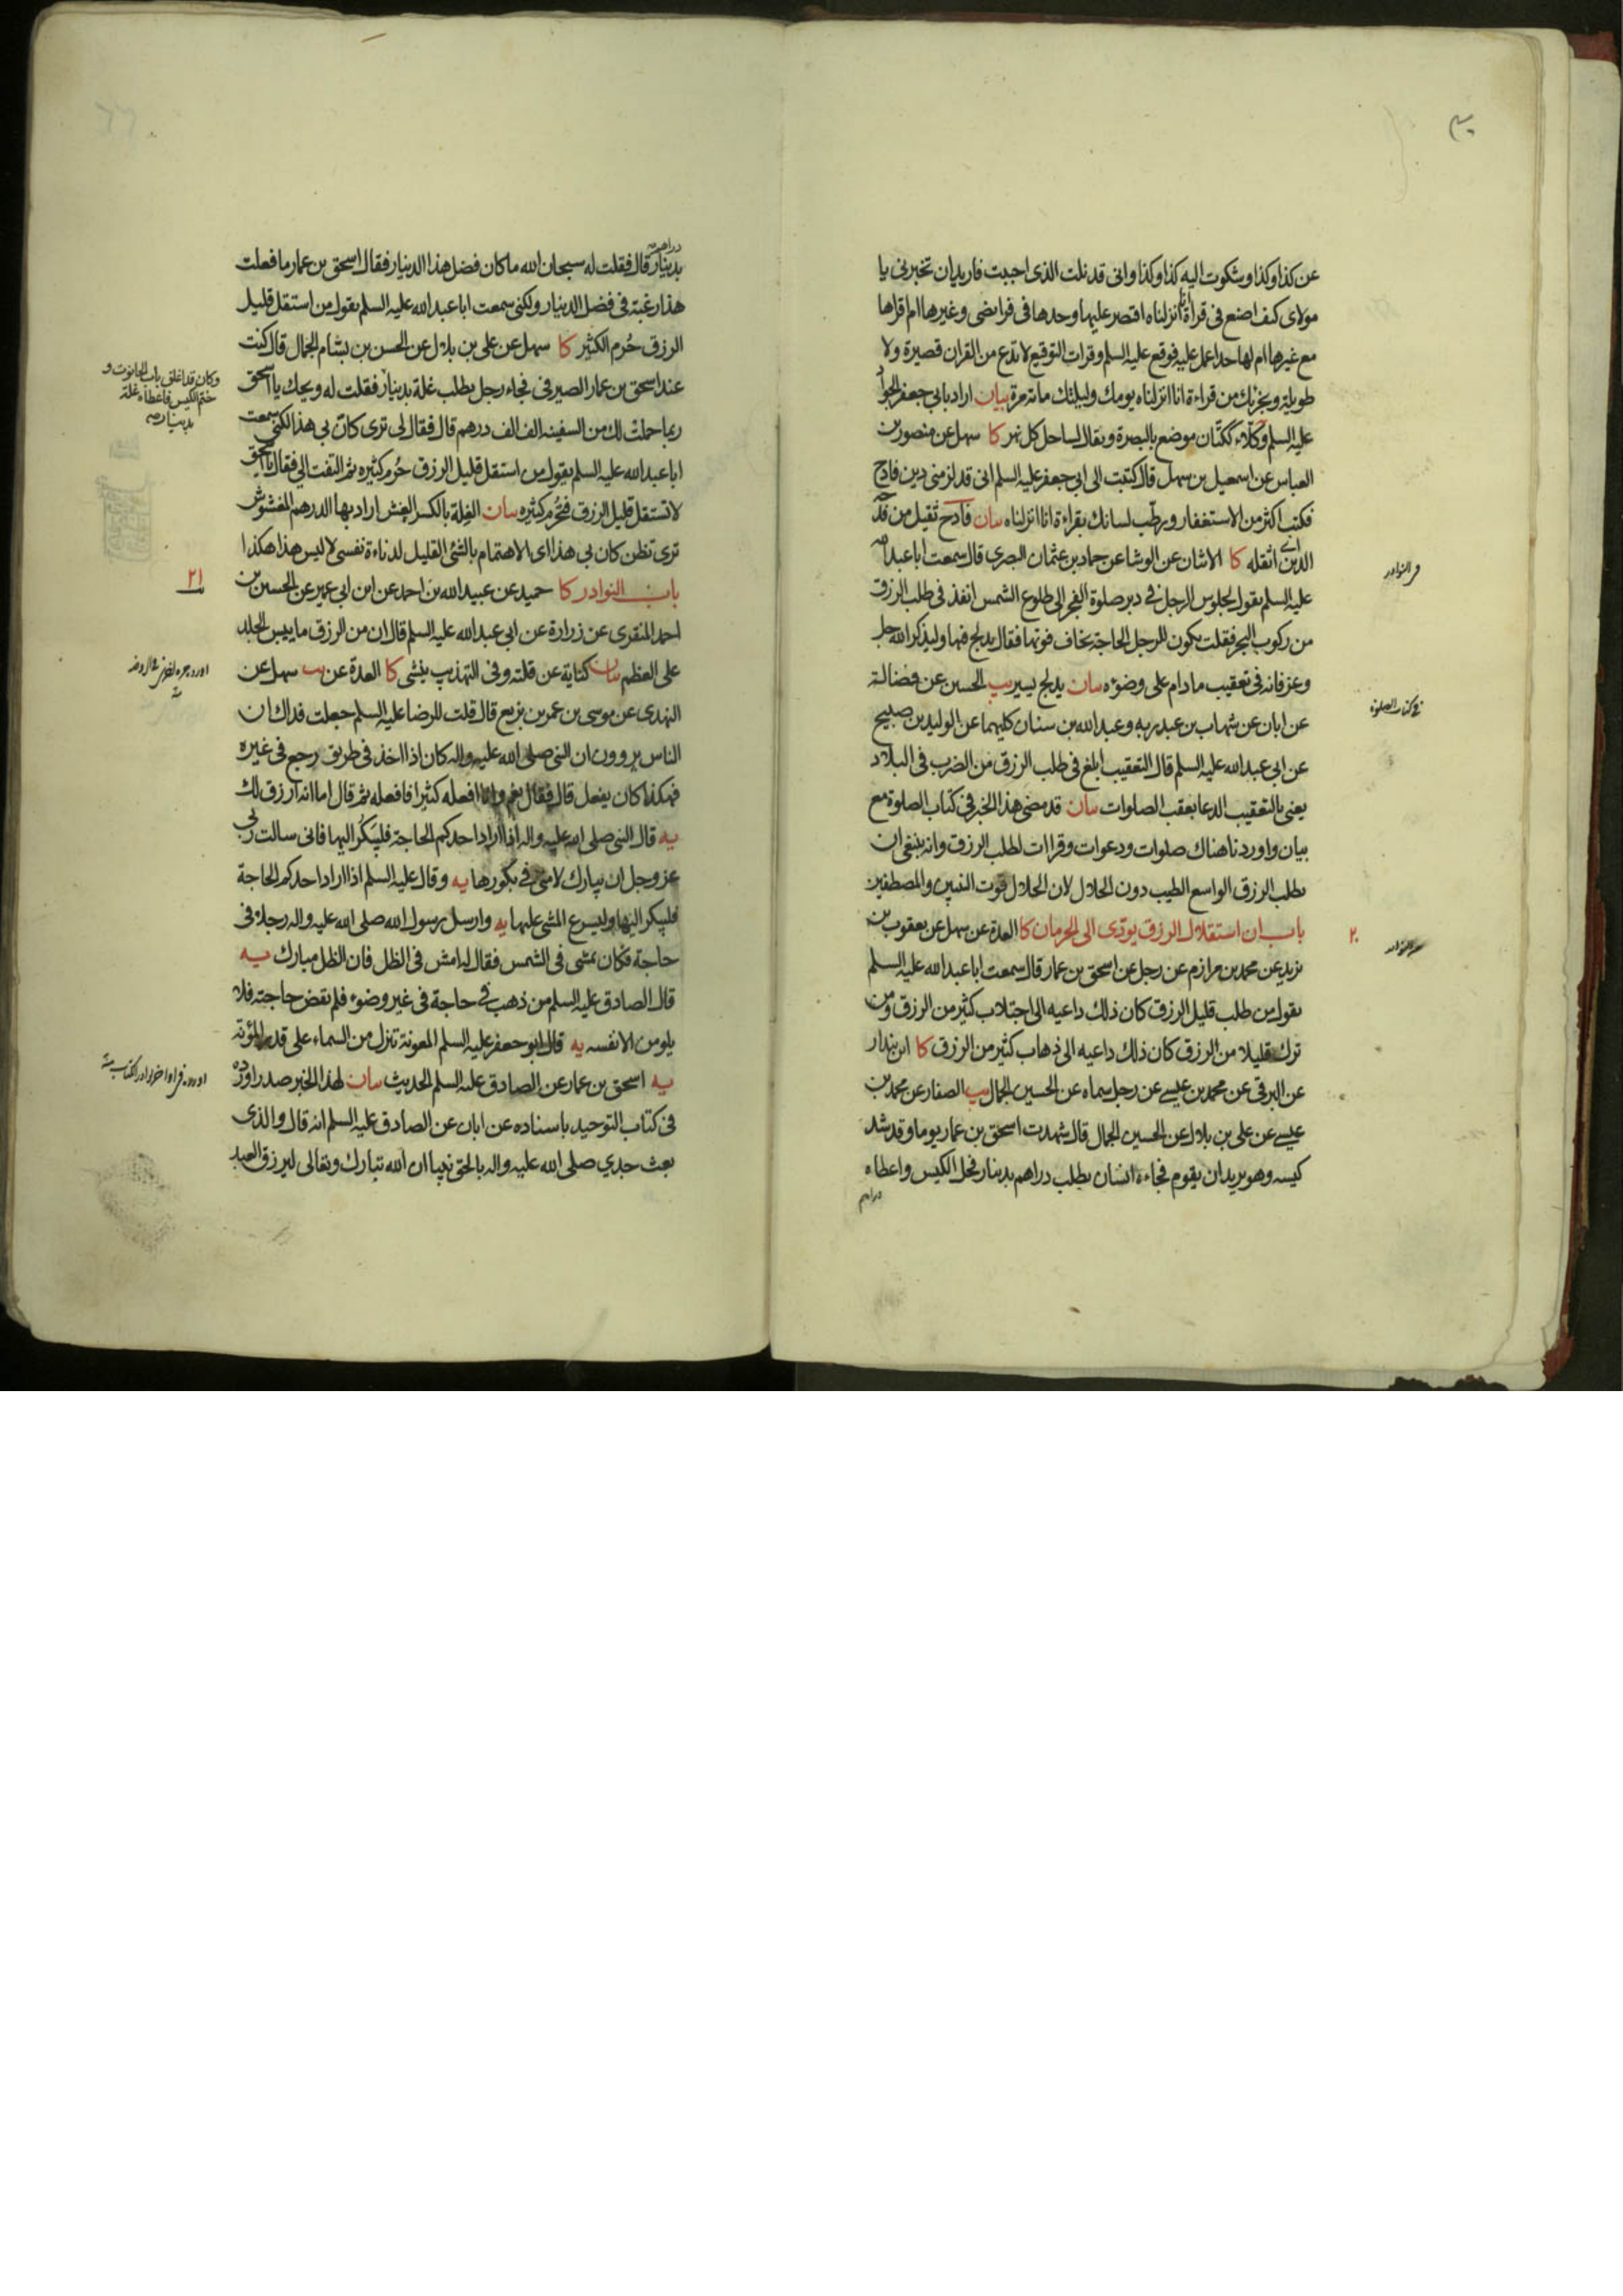 عن كذا وكذا وشكوت اليه كذا وكذا وانى قد نلت الذى احببت فاريد ان تخبرنى يا
مولاى كيف اصنع فى قراءة انا انزلناه اقتصر عليها وحدها فى فرائضى وغيرها ام اقرأها
مع غيرها ام لها حد اعمل عليه فوقع عليه السلم وقرات التوقيع لا تدع من القران قصيرة ولا
طويلة ويجزيك من قراءة انا انزلناه يومك وليلتك مائة مرة بيان اراد بابى جعفر الجواد
عليه السلم وكلاء ككتان موضع بالبصرة ويقال لساحل كل نهر كا سهل عن منصور بن
العباس عن اسمعيل بن سهل قال كتبت الى ابى جعفر عليه السلم انى قد لزمنى دين فادح
فكتب اكثر من الاستغفار ورطب لسانك بقراءة انا انزلناه بيان فادح ثقيل من فدحه
الدين اى اثقله كا الاثنان عن الوشا عن حماد بن عثمان البصرى قال سمعت ابا عبد الله
عليه السلم يقول لجلوس الرجل فى دبر صلوة الفجر الى طلوع الشمس انفذ فى طلب الرزق
من ركوب البحر فقلت يكون للرجل الحاجة يخاف فوتها فقال يدلج فيها وليذكر الله جل
وعز فانه فى تعقيب مادام على وضوء بيان يدلج يسير يب الحسين عن فضالة
عن ابان عن شهاب بن عبد ربه وعبد الله بن سنان كليهما عن الوليد بن صبيح
عن ابى عبد الله عليه السلم قال التعقيب ابلغ فى طلب الرزق من الضرب فى البلاد
يعنى بالتعقيب الدعا بعقب الصلوات بيان قد مضى هذا الخبر فى كتاب الصلوة مع
بيان واوردنا هناك صلوات ودعوات وقراات لطلب الرزق وانه ينبغى ان
يطلب الرزق الواسع الطيب دون الحلال لان الحلال قوت النبيين والمصطفين
باب ان استقلال الرزق يودى الى الحرمان كا العدة عن سهل عن يعقوب بن
يزيد عن محمد بن مرازم عن رجل عن اسحق بن عمار قال سمعت ابا عبد الله عليه السلم
يقول من طلب قليل الرزق كان ذلك داعيه الى اجتلاب كثير من الرزق ومن
ترك قليلا من الرزق كان ذلك داعيه الى ذهاب كثير من الرزق كا ابن بندار
عن البرقى عن محمد بن عيسى عن رجل سماه عن الحسين الجمال يب الصفار عن محمد بن
عيسى عن على بن بلال عن الحسين الجمال قال شهدت اسحق بن عمار يوما وقد شد
كيسه وهو يريد ان يقوم فجاءه انسان يطلب دراهم بدينار فحل الكيس واعطاه
دراهم
فى كتاب الصلوة
٢٠
دراهم
بدينار قال فقلت له سبحان الله ما كان فضل هذا الدينار فقال اسحق بن عمار ما فعلت
هذا رغبة فى فضل الدينار ولكنى سمعت ابا عبد الله عليه السلم يقول من استقل قليل
الرزق حُرم الكثير كا سهل عن على بن بلال عن الحسن بن بسام الجمال قال كنت
عند اسحق بن عمار الصيرفى فجاء رجل يطلب غلة بدينار فقلت له ويحك يا اسحق
ربما حملت لك من السفينة الف الف درهم قال فقال لى ترى كان بى هذا لكنى سمعت
ابا عبد الله عليه السلم يقول من استقل قليل الرزق حُرم كثيره ثم التفت الى فقال يا اسحق
لا تستقل قليل الرزق فتُحرم كثيره بيان الغلة بالكسر الغش اراد بها الدرهم المغشوش
ترى تظن كان بى هذا اى الاهتمام بالشئ القليل لدناءة نفسى لا ليس هذا هكذا
باب النوادر كا حميد عن عبيد الله بن احمد عن ابن ابى عمير عن الحسين بن
احمد المنقرى عن زرارة عن ابى عبد الله عليه السلم قال ان من الرزق ما ييبس الجلد
على العظم بيان كناية عن قلته وفى التهذيب ينشى كا العدة عن يب سهل عن
النهدى عن موسى بن عمر بن بزيع قال قلت للرضا عليه السلم جعلت فداك ان
الناس يروون ان النبى صلى الله عليه واله كان اذا اخذ فى طريق رجع فى غيره
فهكذا كان يفعل قال فقال نعم وانا افعله كثيرا فافعله ثم قال اما انه ارزق لك
يه قال النبى صلى الله عليه واله اذا اراد احدكم الحاجة فليبكر اليها فانى سالت ربى
عز وجل ان يبارك لامتى فى بكورها يه وقال عليه السلم اذا اراد احدكم الحاجة
فليبكر اليها وليسرع المشى عليها يه وارسل رسول الله صلى الله عليه واله رجلا فى
حاجة فكان يمشى فى الشمس فقال له امش فى الظل فان الظل مبارك يه
قال الصادق عليه السلم من ذهب فى حاجة فى غير وضوء فلم يقض حاجته فلا
يلومن الا نفسه يه قال ابو جعفر عليه السلم المعونة تنزل من السماء على قدر المؤنة
يه اسحق بن عمار عن الصادق عليه السلم الحديث بيان لهذا الخبر صدر اورده
فى كتاب التوحيد باسناده عن ابان عن الصادق عليه السلم انه قال والذى
بعث جدي صلى الله عليه واله بالحق نبيا ان الله تبارك وتعالى ليرزق العبد
وكان قد اغلق باب الحانوت و
ختم الكيس فاعطاه غلة
بدينار صه
٢١